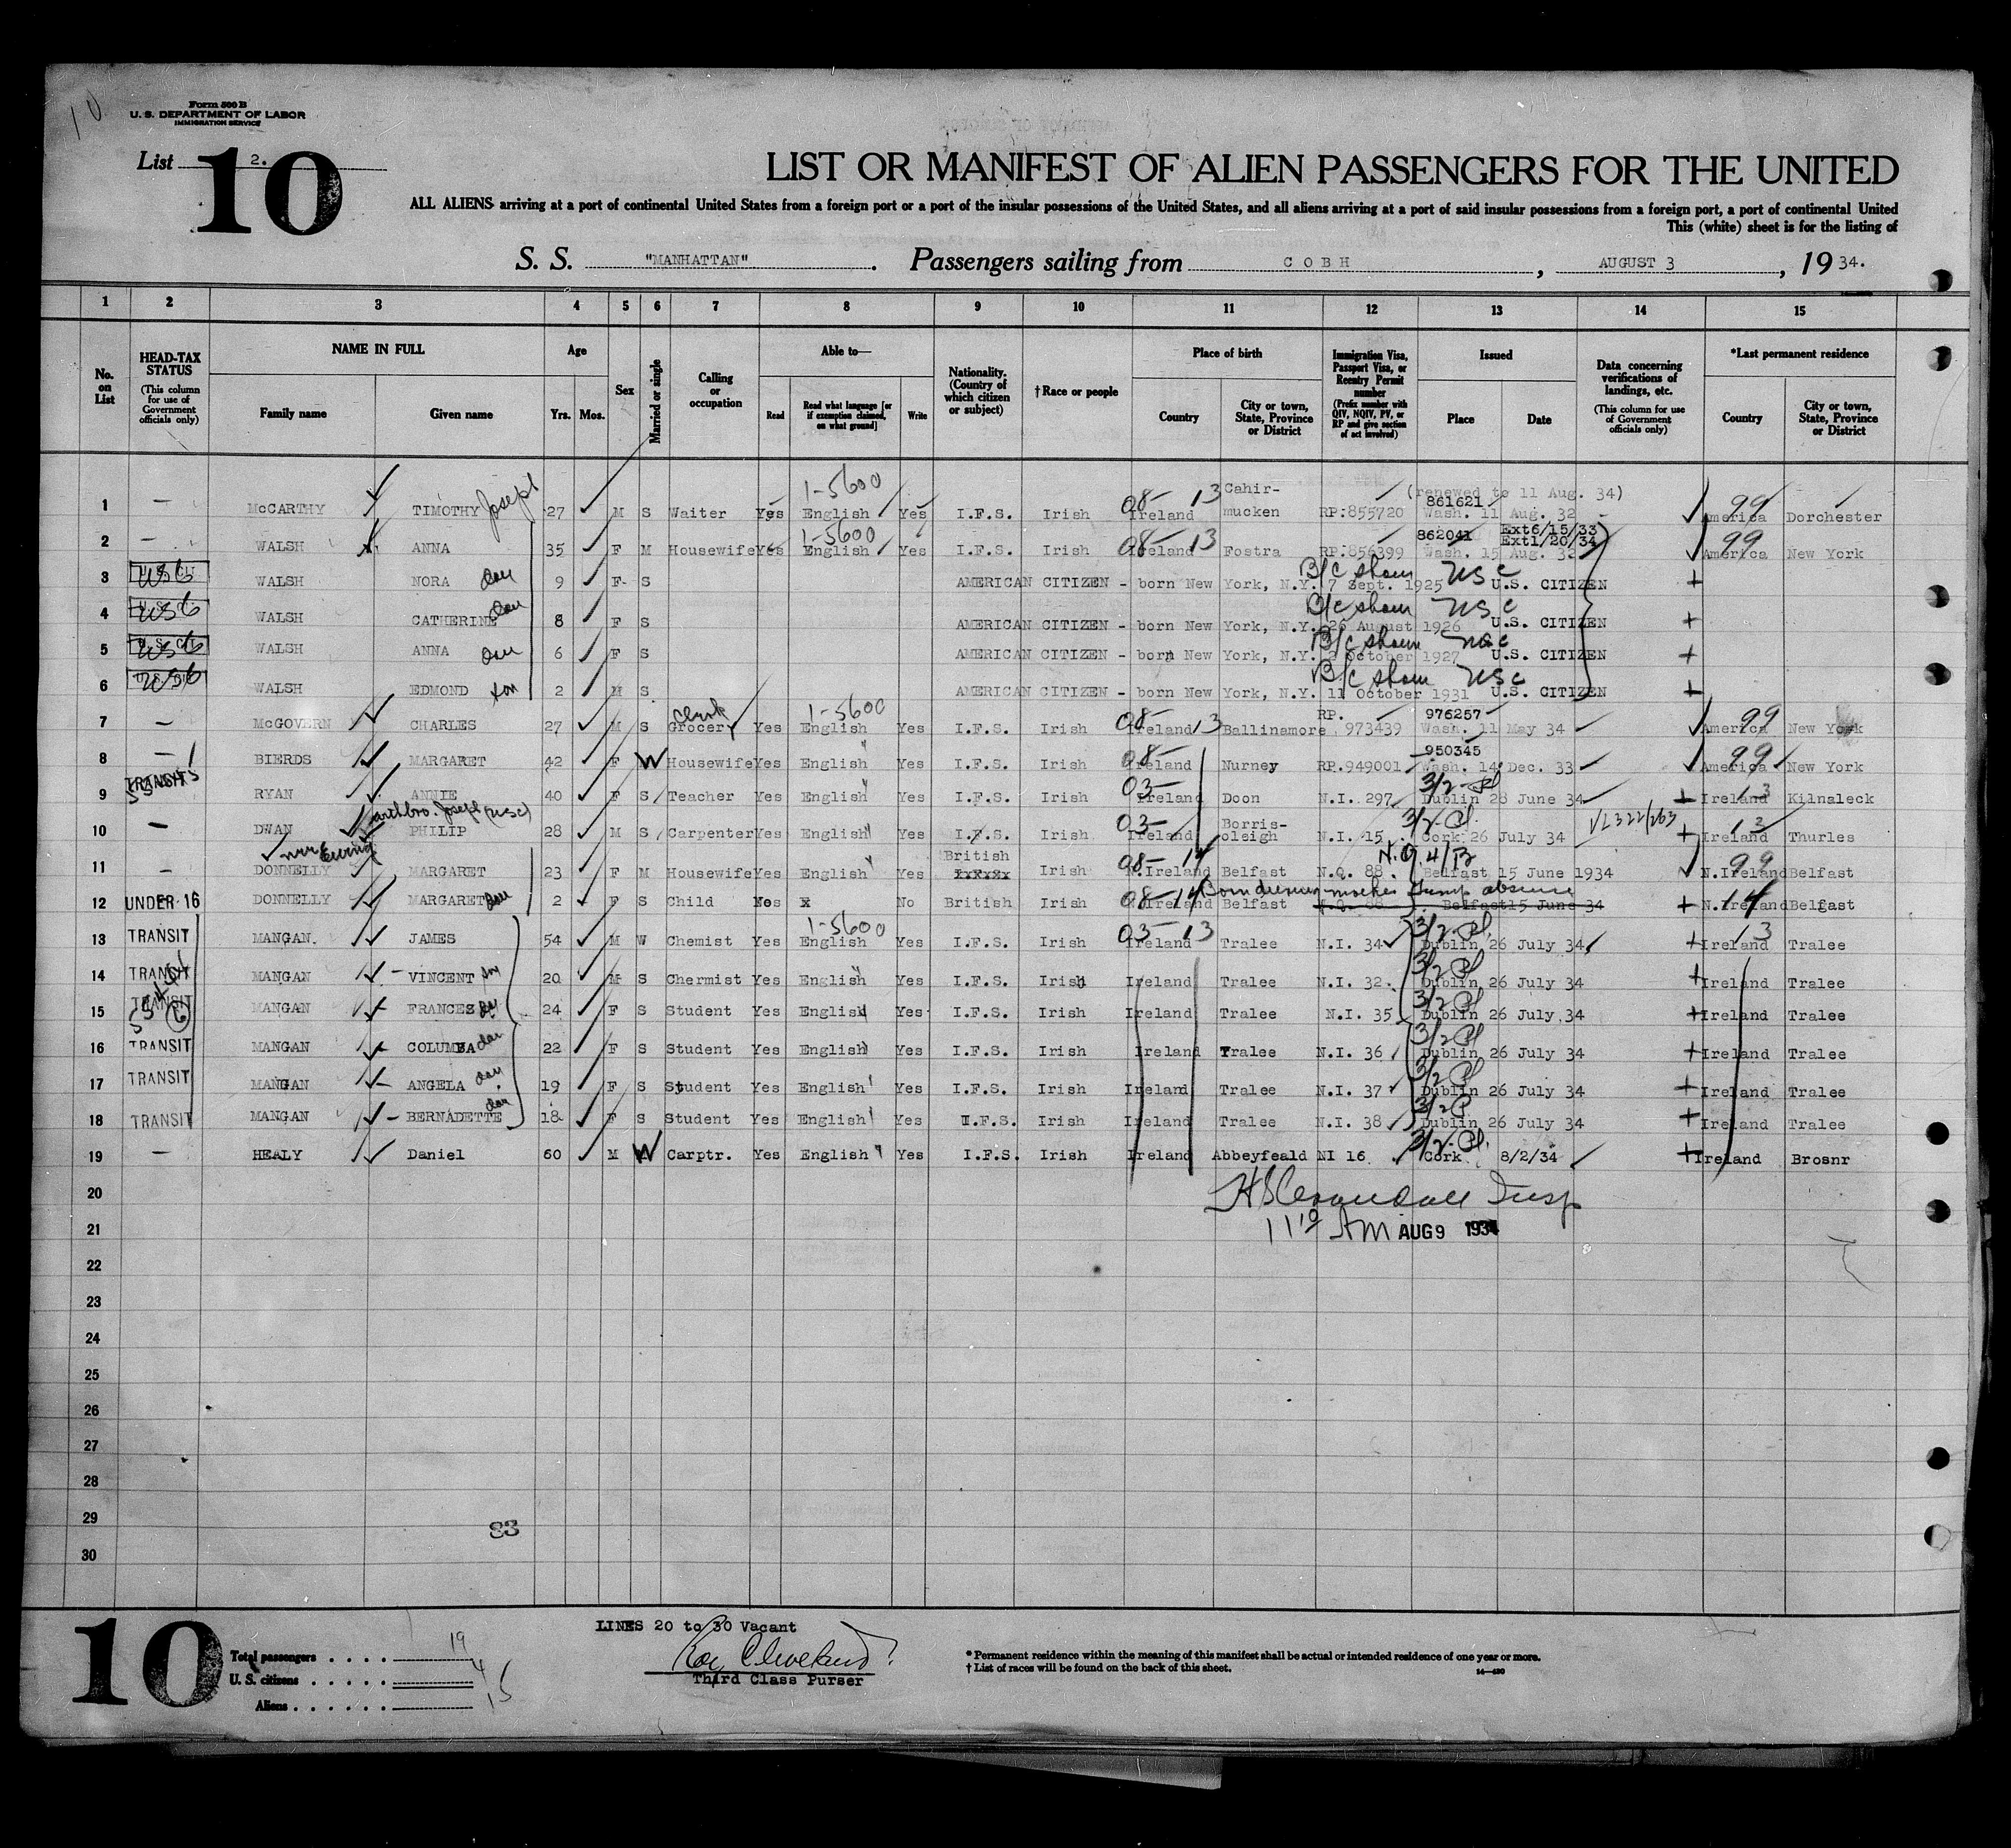 10
Form 500 B
U. S. DEPARTMENT OF LABOR
IMMIGRATION SERVICE
List 2.
10
LIST OR MANIFEST OF ALIEN PASSENGERS FOR THE UNITED
ALL ALIENS arriving at a port of continental United States from a foreign port or a port of the insular possessions of the United States, and all aliens arriving at a port of said insular possessions from a foreign port, a port of continental United
This (white) sheet is for the listing of
S. S. "MANHATTAN". Passengers sailing from COBH, AUGUST 3, 1934.
1 2 3 4 5 6 7 8 9 10 11 12 13 14 15
No. on List
HEAD-TAX STATUS (This column for use of Government officials only)
NAME IN FULL Family name Given name
Age Yrs. Mos.
Sex
Married or single
Calling or occupation
Able to— Read Read what language [or if exemption claimed, on what ground] Write
Nationality. (Country of which citizen or subject)
†Race or people
Place of birth Country City or town, State, Province or District
Immigration Visa, Passport Visa, or Reentry Permit number (Prefix number with QIV, NQIV, PV, or RP and give section of act involved)
Issued Place Date
Data concerning verifications of landings, etc. (This column for use of Government officials only)
*Last permanent residence Country City or town, State, Province or District
1-5600 08- 13 Cahir- (renewed to 11 Aug. 34) 99
1 — McCARTHY TIMOTHY Joseph 27 M S Waiter Yes English Yes I.F.S. Irish Ireland mucken RP:855720 861621 Wash. 11 Aug. 32 America Dorchester
1-5600 08- 13 862041 Ext6/15/33 Ext1/20/34 99
2 — WALSH ANNA 35 F M Housewife Yes English Yes I.F.S. Irish Ireland Fostra RP:856399 Wash. 15 Aug. 32 America New York
3 USC WALSH NORA dau 9 F S AMERICAN CITIZEN - born New York, N.Y. 7 Sept. 1925 U.S. CITIZEN B/C shown USC
4 USC WALSH CATHERINE dau 8 F S AMERICAN CITIZEN - born New York, N.Y. 26 August 1926 U.S. CITIZEN B/C shown USC
5 USC WALSH ANNA dau 6 F S AMERICAN CITIZEN - born New York, N.Y. 2 October 1927 U.S. CITIZEN B/C shown USC
6 USC WALSH EDMOND son 2 M S AMERICAN CITIZEN - born New York, N.Y. 11 October 1931 U.S. CITIZEN B/C shown USC
clerk 1-5600 08- 13 RP. 976257 99
7 — McGOVERN CHARLES 27 M S Grocery Yes English Yes I.F.S. Irish Ireland Ballinamore 973439 Wash. 11 May 34 America New York
08- 950345 99
8 — BIERDS MARGARET 42 F W Housewife Yes English Yes I.F.S. Irish Ireland Nurney RP.949001 Wash. 14 Dec. 33 America New York
TRANSIT 03- 3/2 Pl 13
9 RYAN ANNIE 40 F S Teacher Yes English Yes I.F.S. Irish Ireland Doon N.I. 297 Dublin 28 June 34 Ireland Kilnaleck
with bro. Joseph (USC) 03- Borris- 3/2 Pl. VL322/263 13
10 — DWAN PHILIP 28 M S Carpenter Yes English Yes I.F.S. Irish Ireland oleigh N.I. 15 Cork 26 July 34 Ireland Thurles
British 08- 14 N.Q. 4/B 99
11 — DONNELLY MARGARET 23 F M Housewife Yes English Yes Irish N.Ireland Belfast N.Q. 88. Belfast 15 June 1934 N.Ireland Belfast
08-14 Born during mothers temp absence 14
12 UNDER 16 DONNELLY MARGARET dau 2 F S Child No x No British Irish N.Ireland Belfast N.Q. 88 Belfast15 June 34 N.Ireland Belfast
1-5600 03- 13 3/2 Pl. 13
13 TRANSIT MANGAN. JAMES 54 M W Chemist Yes English Yes I.F.S. Irish Ireland Tralee N.I. 34 Dublin 26 July 34 Ireland Tralee
14 TRANSIT MANGAN VINCENT son 20 M S Chermist Yes English Yes I.F.S. Irish Ireland Tralee N.I. 32. 3/2 Pl Dublin 26 July 34 Ireland Tralee
15 TRANSIT MANGAN FRANCES 24 F S Student Yes English Yes I.F.S. Irish Ireland Tralee N.I. 35 3/2 Pl Dublin 26 July 34 Ireland Tralee
16 TRANSIT MANGAN COLUMBA dau 22 F S Student Yes English Yes I.F.S. Irish Ireland Tralee N.I. 36 3/2 Pl Dublin 26 July 34 Ireland Tralee
17 TRANSIT MANGAN ANGELA dau 19 F S Student Yes English Yes I.F.S. Irish Ireland Tralee N.I. 37 3/2 Pl Dublin 26 July 34 Ireland Tralee
18 TRANSIT MANGAN BERNADETTE dau 18 F S Student Yes English Yes I.F.S. Irish Ireland Tralee N.I. 38 3/2 P Dublin 26 July 34 Ireland Tralee
19 — HEALY Daniel 60 M W Carptr. Yes English Yes I.F.S. Irish Ireland Abbeyfeald NI 16 3/2 Pl. Cork 8/2/34 Ireland Brosnr
20
Insp
21 11 10 AM AUG 9 1934
22
23
24
25
26
27
28
29 83
30
10
LINES 20 to 30 Vacant
Total passengers 19
U. S. citizens 4
Aliens 15
Roy Cleveland
Third Class Purser
* Permanent residence within the meaning of this manifest shall be actual or intended residence of one year or more.
† List of races will be found on the back of this sheet.
14—430